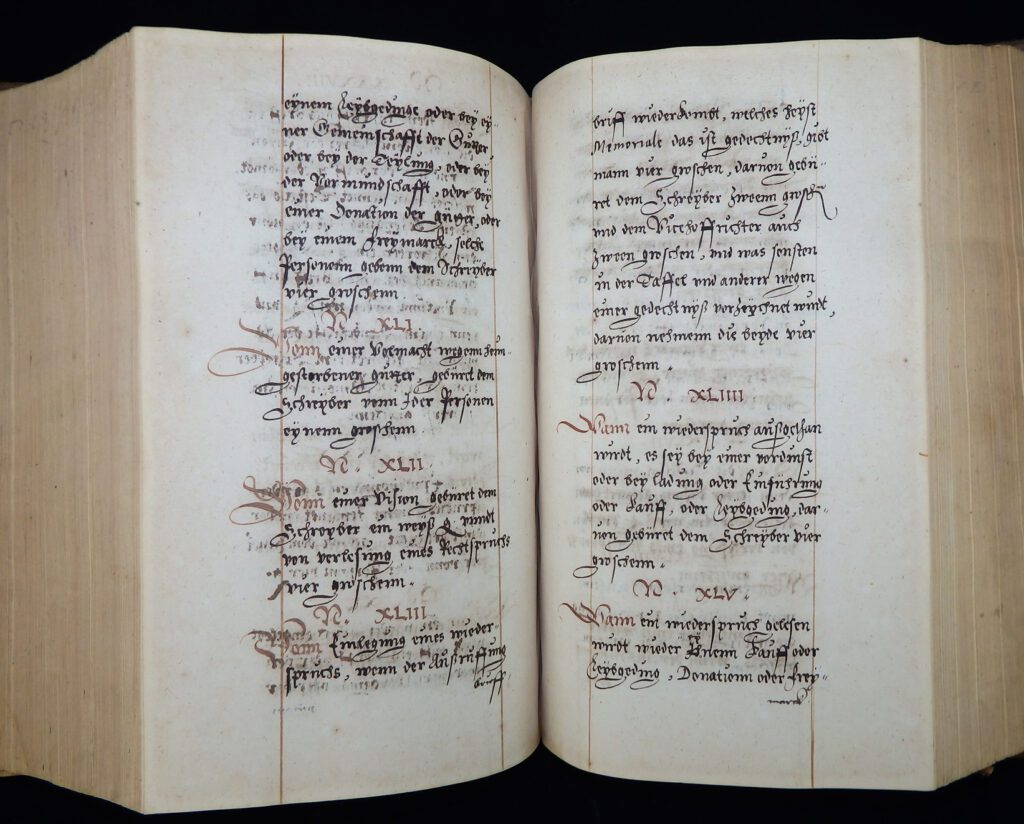 eynem Leybgedinge oder bey ey-
ner Gemeinschafft der Gutter
oder bey der Teylung, oder bey
der Vormundschafft, oder bey
einer Donation der gutter, oder
bey einem freymarck, solche
Personenn gebenn dem Schreyber
vier groschenn.
N. XLI.
Vonn einer Volmacht wegenn heim-
gestorbener gutter, geburet dem
Schreyber vonn Jder Personen
eynenn groschenn.
N. XLII.
Vonn einer Vision geburet dem
Schreyber ein weyß
von verlesung eines Rechtspruchs
vier groschenn.
N. XLIII
Vonn Einlegung eines wieder-
spruchs, wenn der Außruffung
briff
briff wiederkombt, welches heyst
Memoriale das ist gedechtnyß, gibt
mann vier groschen, darvon gebu-
ret dem Schreyber zweenn groschen
vnd dem Vicehoffrichter auch
zween groschen, vnd was sonsten
in der Taffel vnd anderer wegen
einer gedechtnyß vorzeychnet wurdt,
darvon nehmenn die beyde vier
groschenn.
N. XLIIII.
Wann ein wiederspruch außgethan
wirdt, es sey bey einer vordinst
oder bey ladung oder Einführung
oder Kauff, oder Leybgeding, dar-
von geburet dem Schreyber vier
groschenn.
N. XLV.
Wann ein wiederspruch gelesen
wirdt wieder Kauff oder
Leybgeding, Donationn oder frey-
marck